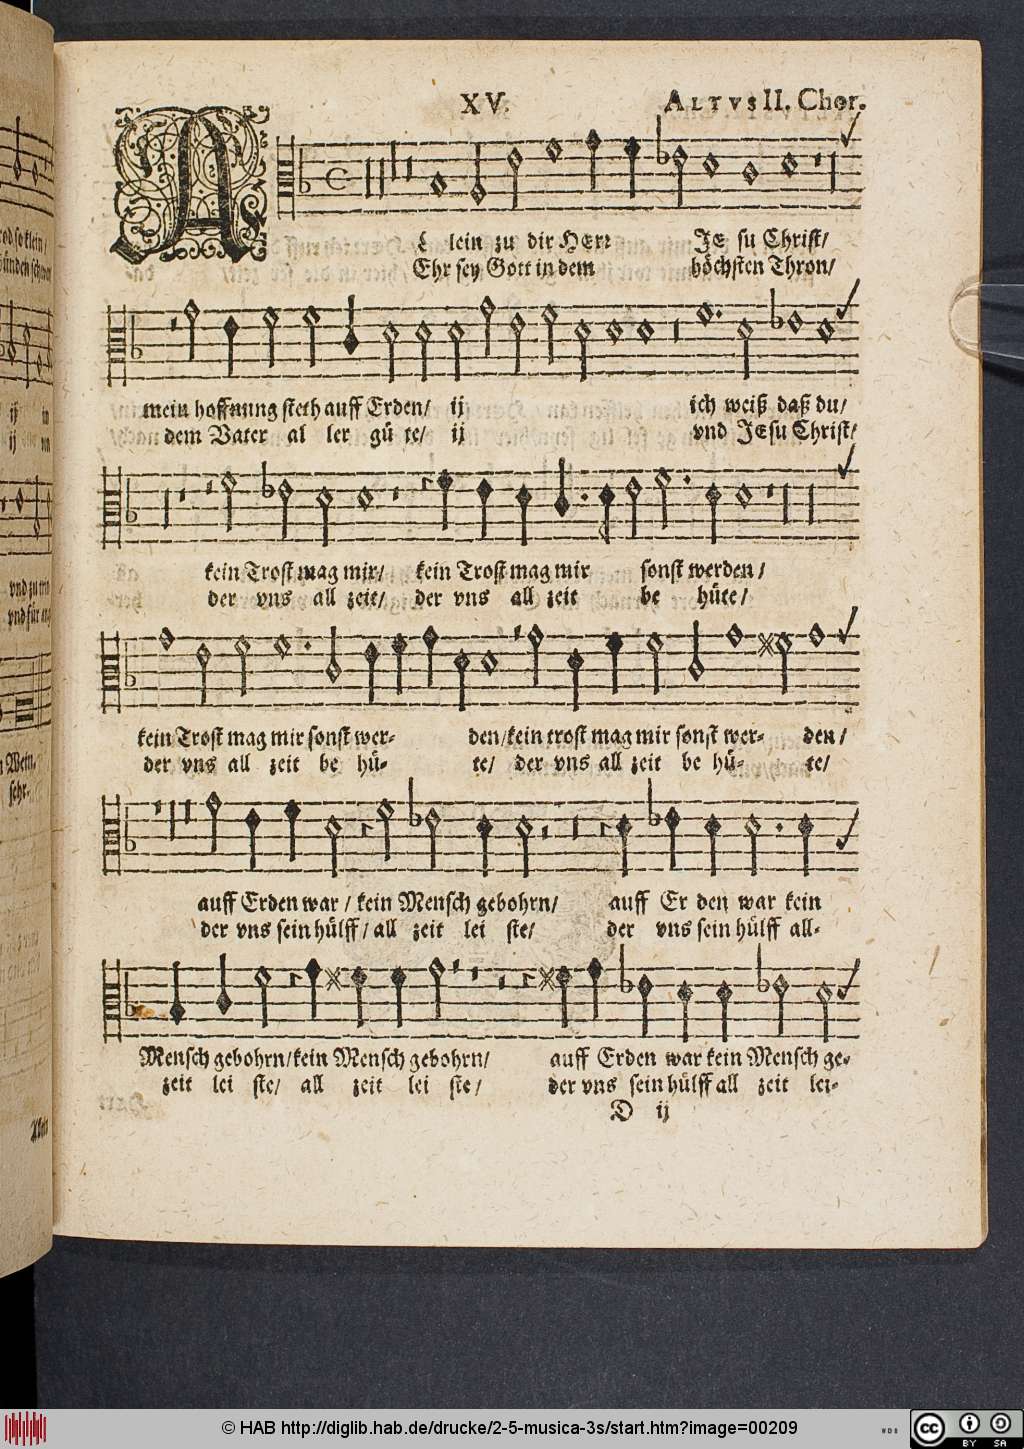 XV.
ALTVS II. Chor.
A
l lein zu dir HErr JE su Christ/
Ehr sey Gott in dem höchsten Thron/
mein hoffnung steth auff Erden/ ij ich weiß daß du/
dem Vater al ler gü te/ ij vnd JEsu Christ/
kein Trost mag mir/ kein Trost mag mir sonst werden/
der vns all zeit/ der vns all zeit be hüte/
kein Trost mag mir sonst wer- den/kein trost mag mir sonst wer- den/
der vns all zeit be hü- te/ der vns all zeit be hü- te/
auff Erden war / kein Mensch gebohrn/ auff Er den war kein
der vns sein hülff/ all zeit lei ste/ der vns sein hülff all-
Mensch gebohrn/kein Mensch gebohrn/ auff Erden war kein Mensch ge-
zeit lei ste/ all zeit lei ste/ der vns sein hülff all zeit lei-
D ij
© HAB http://diglib.hab.de/drucke/2-5-musica-3s/start.htm?image=00209
cc BY SA